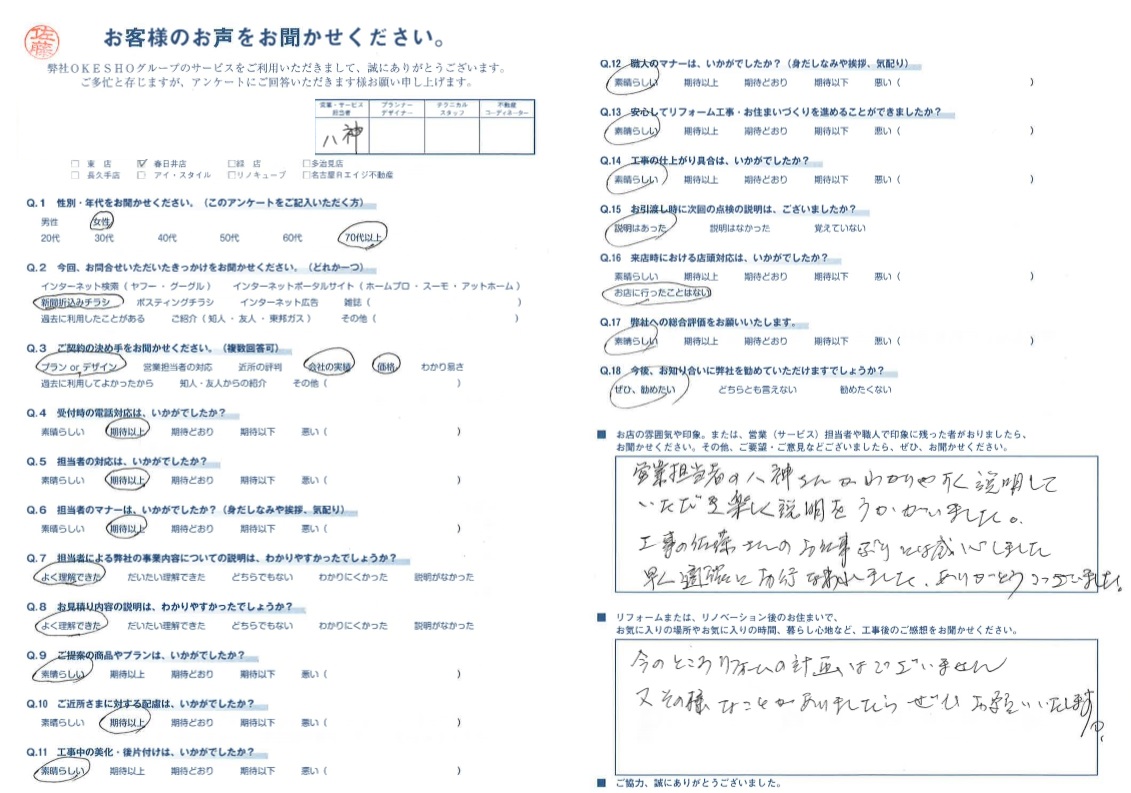 佐藤
お客様のお声をお聞かせください。
弊社OKESHOグループのサービスをご利用いただきまして、誠にありがとうございます。
ご多忙と存じますが、アンケートにご回答いただきます様お願い申し上げます。
営業・サービス担当者 プランナーデザイナー テクニカルスタッフ 不動産コーディネーター
八神
□ 東 店 ☑ 春日井店 □緑 店 □多治見店
□ 長久手店 □ アイ・スタイル □リノキューブ □名古屋Rエイジ不動産
Q.1 性別・年代をお聞かせください。（このアンケートをご記入いただく方）
男性 女性
20代 30代 40代 50代 60代 70代以上
Q.2 今回、お問合せいただいたきっかけをお聞かせください。（どれか一つ）
インターネット検索（ ヤフー ・ グーグル ） インターネットポータルサイト（ ホームプロ ・ スーモ ・ アットホーム ）
新聞折込みチラシ ポスティングチラシ インターネット広告 雑誌（ ）
過去に利用したことがある ご紹介（ 知人 ・ 友人 ・ 東邦ガス ） その他（ ）
Q.3 ご契約の決め手をお聞かせください。（複数回答可）
プラン or デザイン 営業担当者の対応 近所の評判 会社の実績 価格 わかり易さ
過去に利用してよかったから 知人・友人からの紹介 その他（ ）
Q.4 受付時の電話対応は、いかがでしたか？
素晴らしい 期待以上 期待どおり 期待以下 悪い（ ）
Q.5 担当者の対応は、いかがでしたか？
素晴らしい 期待以上 期待どおり 期待以下 悪い（ ）
Q.6 担当者のマナーは、いかがでしたか？（身だしなみや挨拶、気配り）
素晴らしい 期待以上 期待どおり 期待以下 悪い（ ）
Q.7 担当者による弊社の事業内容についての説明は、わかりやすかったでしょうか？
よく理解できた だいたい理解できた どちらでもない わかりにくかった 説明がなかった
Q.8 お見積り内容の説明は、わかりやすかったでしょうか？
よく理解できた だいたい理解できた どちらでもない わかりにくかった 説明がなかった
Q.9 ご提案の商品やプランは、いかがでしたか？
素晴らしい 期待以上 期待どおり 期待以下 悪い（ ）
Q.10 ご近所さまに対する配慮は、いかがでしたか？
素晴らしい 期待以上 期待どおり 期待以下 悪い（ ）
Q.11 工事中の美化・後片付けは、いかがでしたか？
素晴らしい 期待以上 期待どおり 期待以下 悪い（ ）
Q.12 職人のマナーは、いかがでしたか？（身だしなみや挨拶、気配り）
素晴らしい 期待以上 期待どおり 期待以下 悪い（ ）
Q.13 安心してリフォーム工事・お住まいづくりを進めることができましたか？
素晴らしい 期待以上 期待どおり 期待以下 悪い（ ）
Q.14 工事の仕上がり具合は、いかがでしたか？
素晴らしい 期待以上 期待どおり 期待以下 悪い（ ）
Q.15 お引渡し時に次回の点検の説明は、ございましたか？
説明はあった 説明はなかった 覚えていない
Q.16 来店時における店頭対応は、いかがでしたか？
素晴らしい 期待以上 期待どおり 期待以下 悪い（ ）
お店に行ったことはない
Q.17 弊社への総合評価をお願いいたします。
素晴らしい 期待以上 期待どおり 期待以下 悪い（ ）
Q.18 今後、お知り合いに弊社を勧めていただけますでしょうか？
ぜひ、勧めたい どちらとも言えない 勧めたくない
■ お店の雰囲気や印象。または、営業（サービス）担当者や職人で印象に残った者がおりましたら、
お聞かせください。その他、ご要望・ご意見などございましたら、ぜひ、お聞かせください。
営業担当者の八神さんがわかりやすく説明して
いただき楽しく説明をうかがいました。
工事の佐藤さんのお仕事ぶりには感心しました
早く適確に お行なわれました、ありがとうございました。
■ リフォームまたは、リノベーション後のお住まいで、
お気に入りの場所やお気に入りの時間、暮らし心地など、工事後のご感想をお聞かせください。
今のところリフォームの計画はございません
又その様なことがありましたら ぜひ お願いいたします
■ ご協力、誠にありがとうございました。